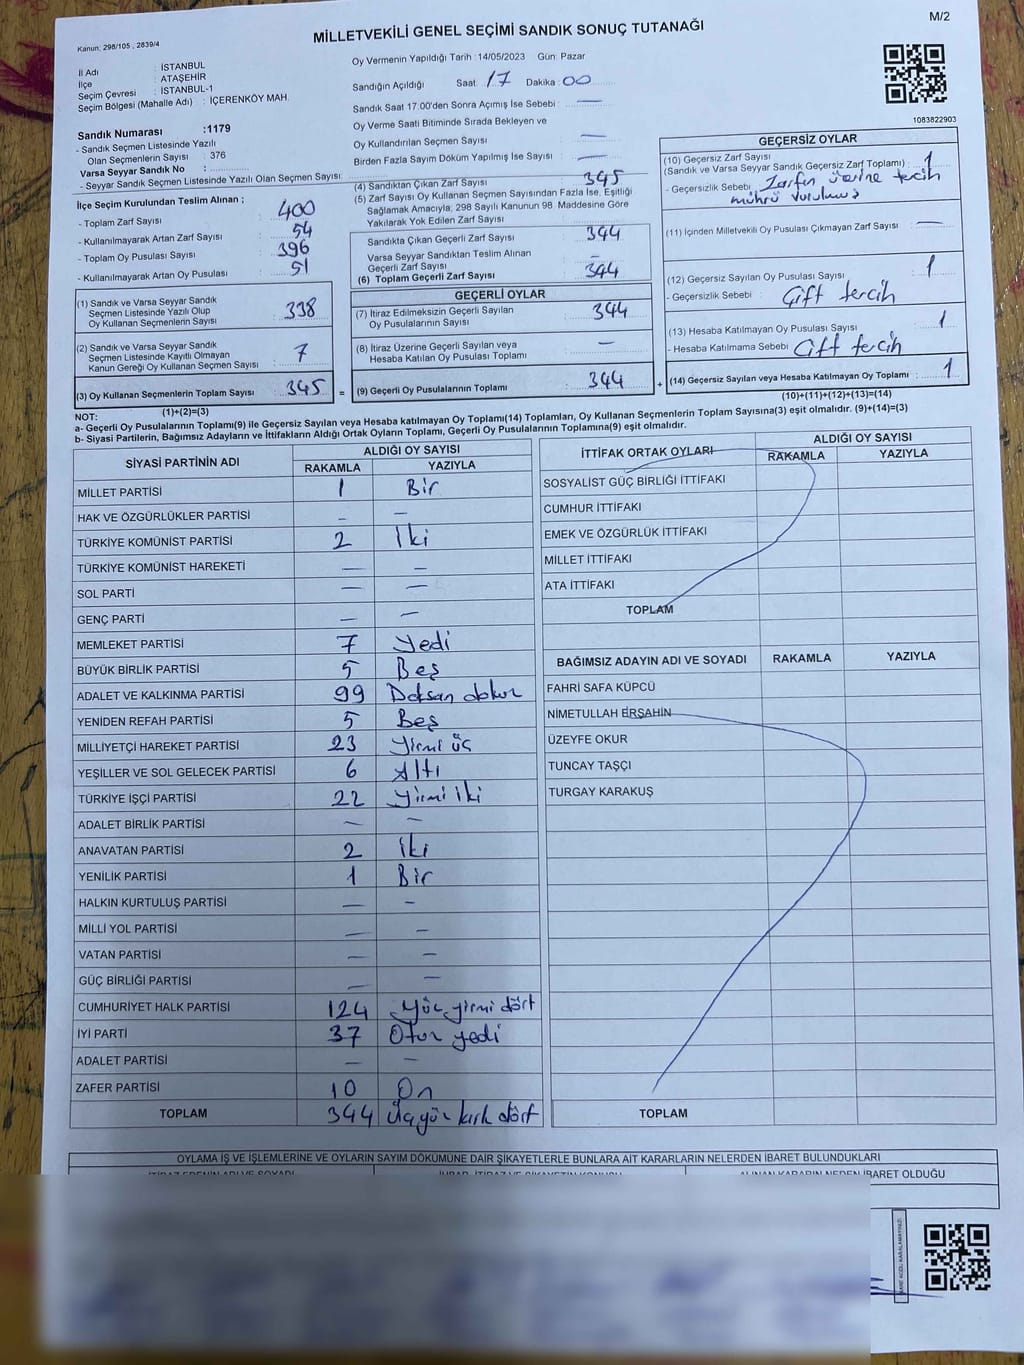 M/2
MİLLETVEKİLİ GENEL SEÇİMİ SANDIK SONUÇ TUTANAĞI
Kanun: 298/105 , 2839/4
İl Adı : İSTANBUL
İlçe : ATAŞEHİR
Seçim Çevresi : İSTANBUL-1
Seçim Bölgesi (Mahalle Adı) : İÇERENKÖY MAH.
Sandık Numarası :1179
- Sandık Seçmen Listesinde Yazılı
Olan Seçmenlerin Sayısı : 376
Varsa Seyyar Sandık No :
- Seyyar Sandık Seçmen Listesinde Yazılı Olan Seçmen Sayısı:
Oy Vermenin Yapıldığı Tarih :14/05/2023 Gün: Pazar
Sandığın Açıldığı Saat : 17 Dakika : 00
Sandık Saat 17:00'den Sonra Açımış İse Sebebi : —
Oy Verme Saati Bitiminde Sırada Bekleyen ve
Oy Kullandırılan Seçmen Sayısı : —
Birden Fazla Sayım Döküm Yapılmış İse Sayısı : —
1083822903
İlçe Seçim Kurulundan Teslim Alınan ;
- Toplam Zarf Sayısı : 400
- Kullanılmayarak Artan Zarf Sayısı : 54
- Toplam Oy Pusulası Sayısı : 396
- Kullanılmayarak Artan Oy Pusulası : 51
(1) Sandık ve Varsa Seyyar Sandık
Seçmen Listesinde Yazılı Olup
Oy Kullanan Seçmenlerin Sayısı : 338
(2) Sandık ve Varsa Seyyar Sandık
Seçmen Listesinde Kayıtlı Olmayan
Kanun Gereği Oy Kullanan Seçmen Sayısı : 7
(3) Oy Kullanan Seçmenlerin Toplam Sayısı : 345 =
(1)+(2)=(3)
(4) Sandıktan Çıkan Zarf Sayısı : 345
(5) Zarf Sayısı Oy Kullanan Seçmen Sayısından Fazla İse, Eşitliği
Sağlamak Amacıyla, 298 Sayılı Kanunun 98. Maddesine Göre
Yakılarak Yok Edilen Zarf Sayısı :
Sandıkta Çıkan Geçerli Zarf Sayısı : 344
Varsa Seyyar Sandıktan Teslim Alınan
Geçerli Zarf Sayısı : —
(6) Toplam Geçerli Zarf Sayısı : 344
GEÇERLİ OYLAR
(7) İtiraz Edilmeksizin Geçerli Sayılan
Oy Pusulalarının Sayısı : 344
(8) İtiraz Üzerine Geçerli Sayılan veya
Hesaba Katılan Oy Pusulası Toplamı : —
(9) Geçerli Oy Pusulalarının Toplamı : 344 +
GEÇERSİZ OYLAR
(10) Geçersiz Zarf Sayısı
(Sandık ve Varsa Seyyar Sandık Geçersiz Zarf Toplamı) : 1
- Geçersizlik Sebebi : Zarfın üzerine tercih
mührü vurulmuş
(11) İçinden Milletvekili Oy Pusulası Çıkmayan Zarf Sayısı : —
(12) Geçersiz Sayılan Oy Pusulası Sayısı : 1
- Geçersizlik Sebebi : Çift tercih
(13) Hesaba Katılmayan Oy Pusulası Sayısı : 1
- Hesaba Katılmama Sebebi : Çift tercih
(14) Geçersiz Sayılan veya Hesaba Katılmayan Oy Toplamı : 1
(10)+(11)+(12)+(13)=(14)
NOT:
a- Geçerli Oy Pusulalarının Toplamı(9) ile Geçersiz Sayılan veya Hesaba katılmayan Oy Toplamı(14) Toplamları, Oy Kullanan Seçmenlerin Toplam Sayısına(3) eşit olmalıdır. (9)+(14)=(3)
b- Siyasi Partilerin, Bağımsız Adayların ve İttifakların Aldığı Ortak Oyların Toplamı, Geçerli Oy Pusulalarının Toplamına(9) eşit olmalıdır.
SİYASİ PARTİNİN ADI ALDIĞI OY SAYISI
RAKAMLA YAZIYLA
MİLLET PARTİSİ 1 Bir
HAK VE ÖZGÜRLÜKLER PARTİSİ — —
TÜRKİYE KOMÜNİST PARTİSİ 2 İki
TÜRKİYE KOMÜNİST HAREKETİ — —
SOL PARTİ — —
GENÇ PARTİ — —
MEMLEKET PARTİSİ 7 Yedi
BÜYÜK BİRLİK PARTİSİ 5 Beş
ADALET VE KALKINMA PARTİSİ 99 Doksan dokuz
YENİDEN REFAH PARTİSİ 5 Beş
MİLLİYETÇİ HAREKET PARTİSİ 23 Yirmi üç
YEŞİLLER VE SOL GELECEK PARTİSİ 6 Altı
TÜRKİYE İŞÇİ PARTİSİ 22 Yirmi iki
ADALET BİRLİK PARTİSİ — —
ANAVATAN PARTİSİ 2 iki
YENİLİK PARTİSİ 1 Bir
HALKIN KURTULUŞ PARTİSİ — —
MİLLİ YOL PARTİSİ — —
VATAN PARTİSİ — —
GÜÇ BİRLİĞİ PARTİSİ — —
CUMHURİYET HALK PARTİSİ 124 Yüz yirmi dört
İYİ PARTİ 37 Otuz yedi
ADALET PARTİSİ — —
ZAFER PARTİSİ 10 On
TOPLAM 344 Üçyüz kırk dört
İTTİFAK ORTAK OYLARI ALDIĞI OY SAYISI
RAKAMLA YAZIYLA
SOSYALİST GÜÇ BİRLİĞİ İTTİFAKI
CUMHUR İTTİFAKI
EMEK VE ÖZGÜRLÜK İTTİFAKI
MİLLET İTTİFAKI
ATA İTTİFAKI
TOPLAM
BAĞIMSIZ ADAYIN ADI VE SOYADI RAKAMLA YAZIYLA
FAHRİ SAFA KÜPCÜ
NİMETULLAH ERŞAHİN
ÜZEYFE OKUR
TUNCAY TAŞÇI
TURGAY KARAKUŞ
TOPLAM
OYLAMA İŞ VE İŞLEMLERİNE VE OYLARIN SAYIM DÖKÜMÜNE DAİR ŞİKAYETLERLE BUNLARA AİT KARARLARIN NELERDEN İBARET BULUNDUKLARI
İTİRAZ EDENİN ADI VE SOYADI İHBAR, İTİRAZ VE ŞİKAYETİN KONUSU ALINAN KARARIN NEDEN İBARET OLDUĞU